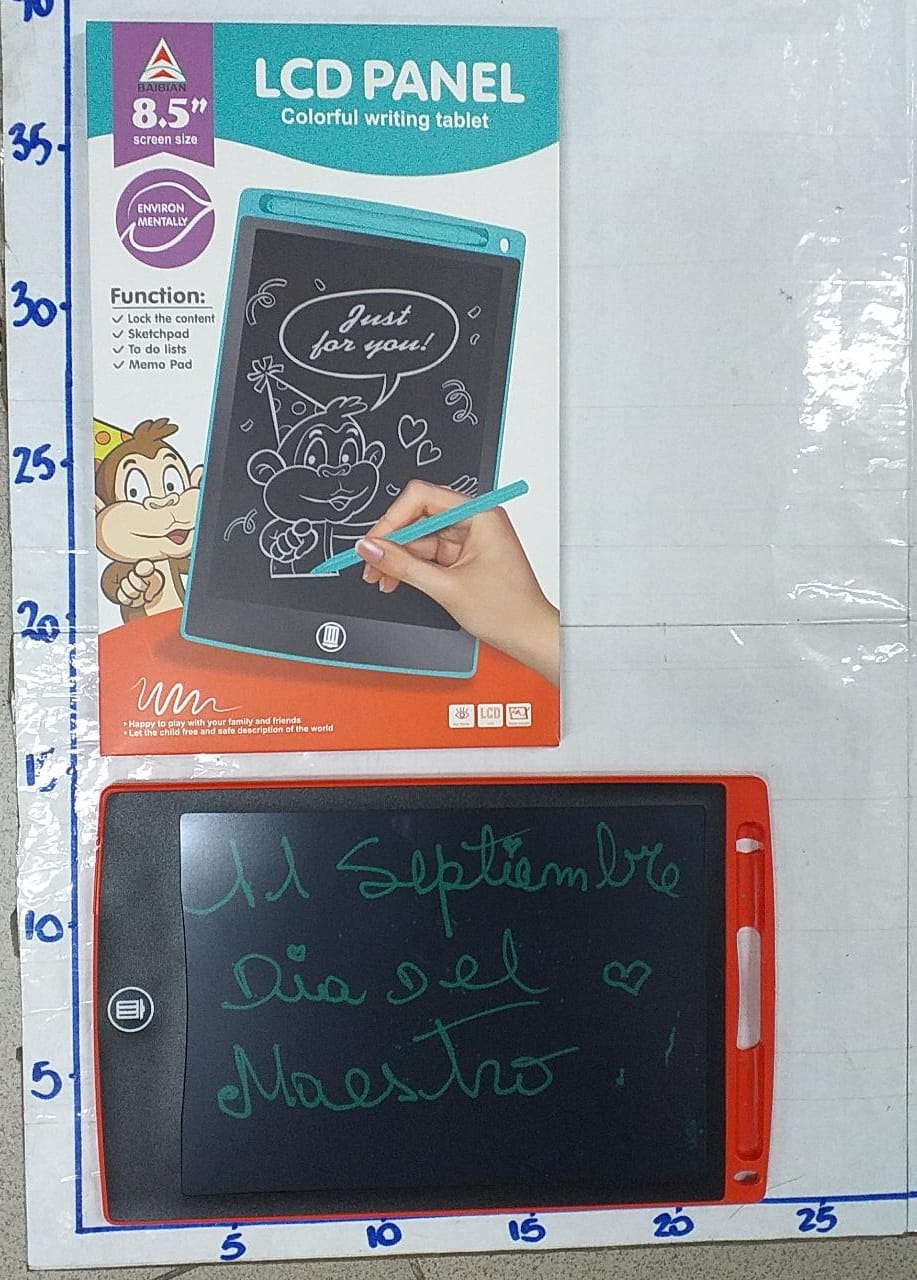 BAIBIAN
8.5"
screen size
LCD PANEL
Colorful writing tablet
ENVIRON
MENTALLY
Function:
✓ Lock the content
✓ Sketchpad
✓ To do lists
✓ Memo Pad
Just
for you!
• Happy to play with your family and friends
• Let the child free and safe description of the world
LCD
11 Septiembre
Dia del
Maestro
35
30
25
20
10
5
5
10
15
20
25